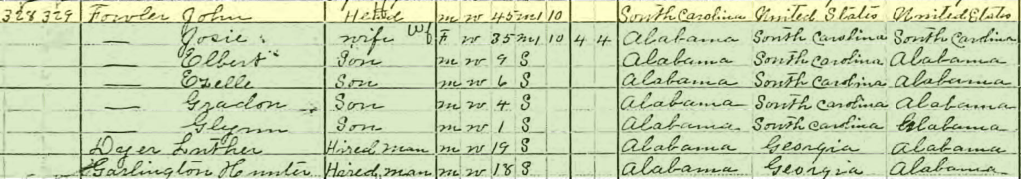 328 329 Fowler John Head m w 45 m1 10 South Carolina United States United States
— Josie wife Wf F w 35 m1 10 4 4 Alabama South Carolina South Carolina
— Elbert Son m w 9 S Alabama South Carolina Alabama
— Ezelle Son m w 6 S Alabama South Carolina Alabama
— Gradon Son m w 4 S Alabama South Carolina Alabama
— Glynn Son m w 1 S Alabama South Carolina Alabama
Dyer Luther Hired man m w 19 S Alabama Georgia Alabama
Garlington Hunter Hired man m w 18 S Alabama Georgia Alabama